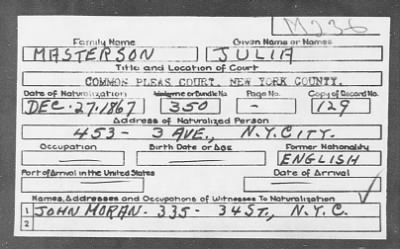 M236
Family Name Given Name or Names
MASTERSON JULIA
Title and Location of Court
COMMON PLEAS COURT, NEW YORK COUNTY.
Date of Naturalization Volume or Bundle No. Page No. Copy of Record No.
DEC. 27. 1867 350 - 129
Address of Naturalized Person
453 - 3 AVE., N.Y. CITY.
Occupation Birth Date or Age Former Nationality
ENGLISH
Port of Arrival in the United States Date of Arrival
Names, Addresses and Occupations of Witnesses To Naturalization
1 JOHN MORAN - 335 - 34 ST., N.Y.C.
2